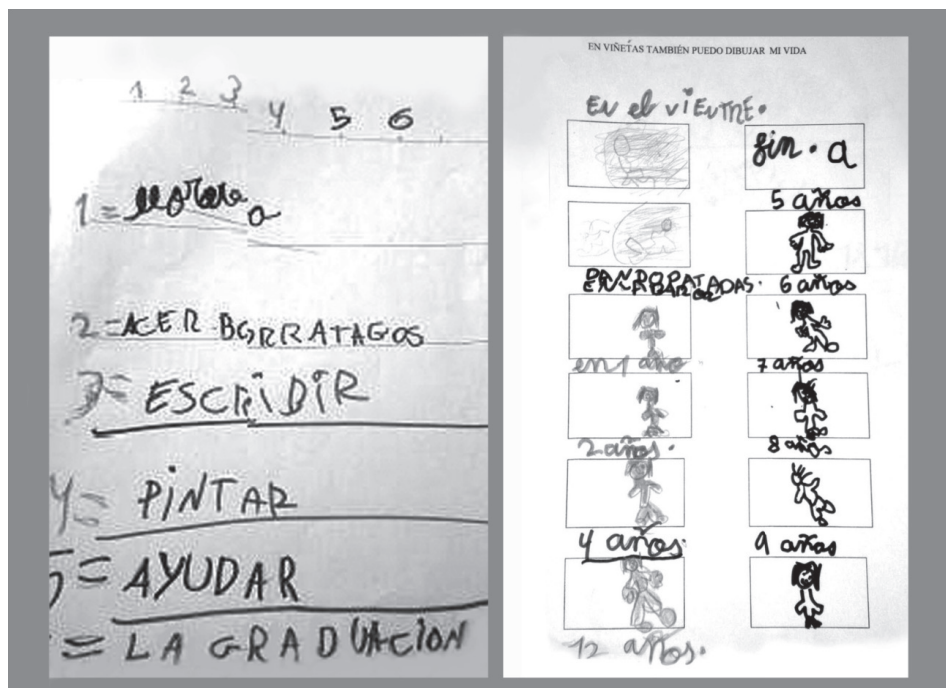 1 2 3
4 5 6
1 = llorar a
2 = ACER BORRATAGOS
3 = ESCRIDIR
4 = PINTAR
5 = AYUDAR
= LA GRADUACION
EN VIÑETAS TAMBIÉN PUEDO DIBUJAR MI VIDA
EN el viENTRE.
PATADAS.
en 1 año
2 años.
4 años.
12 años.
fin. a
5 años
6 años
7 años
8 años
9 años